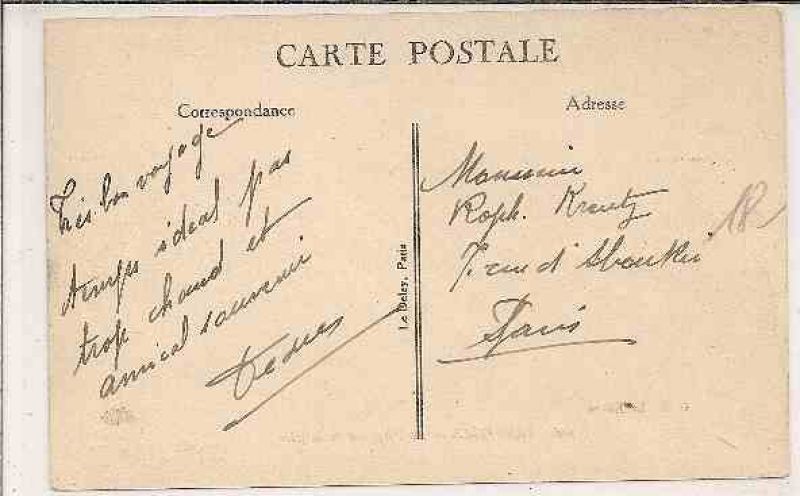 CARTE POSTALE
Correspondance
Très bon voyage
temps idéal pas
trop chaud et
amical souvenir
Adresse
Monsieur
Raph. Kreutz
7. rue d'
Paris
18
Le Deley, Paris